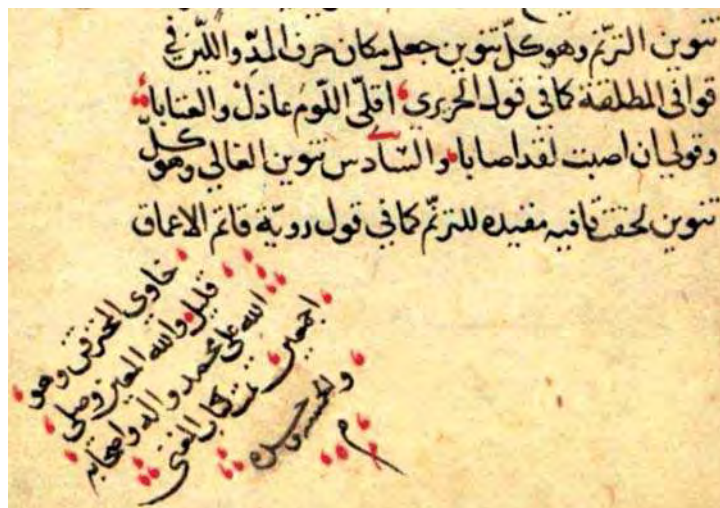 تنوين الترنّم وهو كلّ تنوين جعل مكان حرف المدّ واللّين في
قوافي المطلقة كما في قول الجريري اقلّي اللّوم عاذل والعتابا
وقولي ان اصبت لقد اصابا والسّادس تنوين الغالي وهو كلّ
تنوين لحقت قافيه مقيده للترنّم كما في قول روبّة قاتم الاعماق
خاوي المخترق وهو
قليل والله المعين وصلى
الله على محمد واله واصحابه
اجمعين تمت كتاب المغنى
م